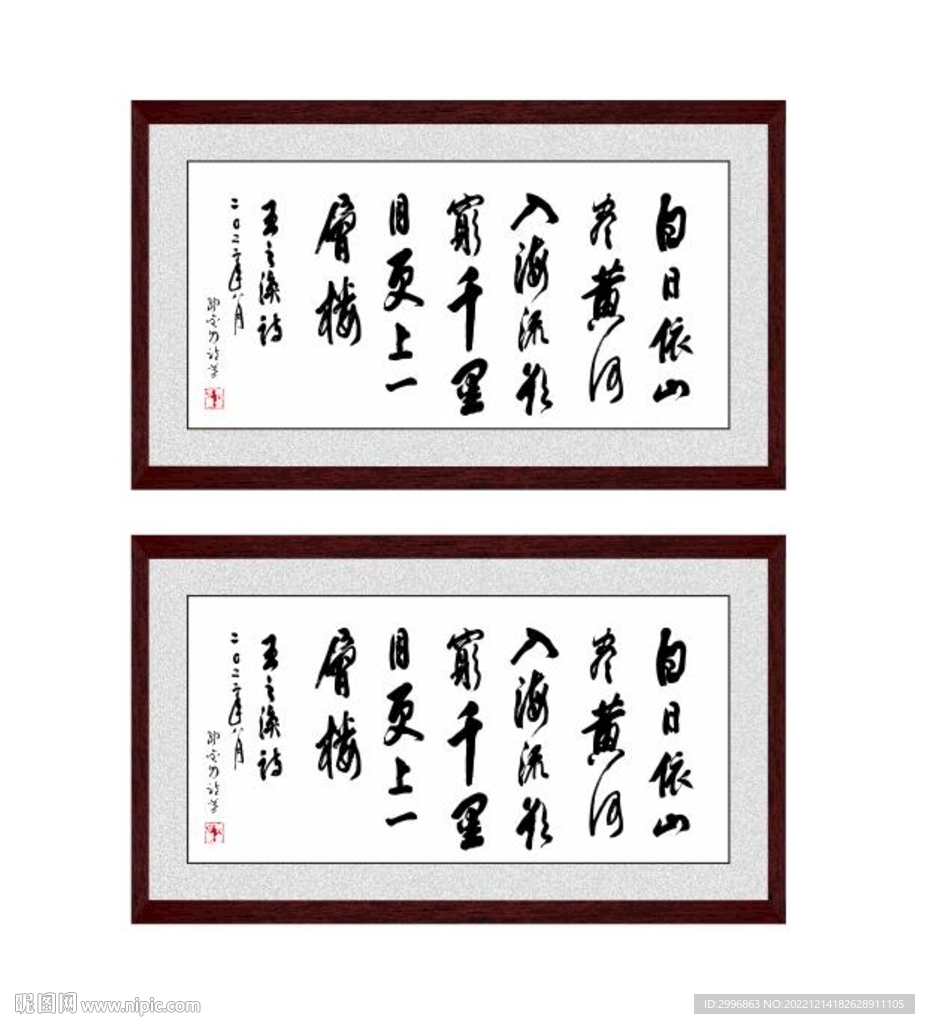 白日依山
尽黄河
入海流欲
窮千里
目更上一
層楼
王之涣诗
二0二二年八月
白日依山
尽黄河
入海流欲
窮千里
目更上一
層楼
王之涣诗
二0二二年八月
昵图网 www.nipic.com
ID:2996863 NO:20221214182628911105